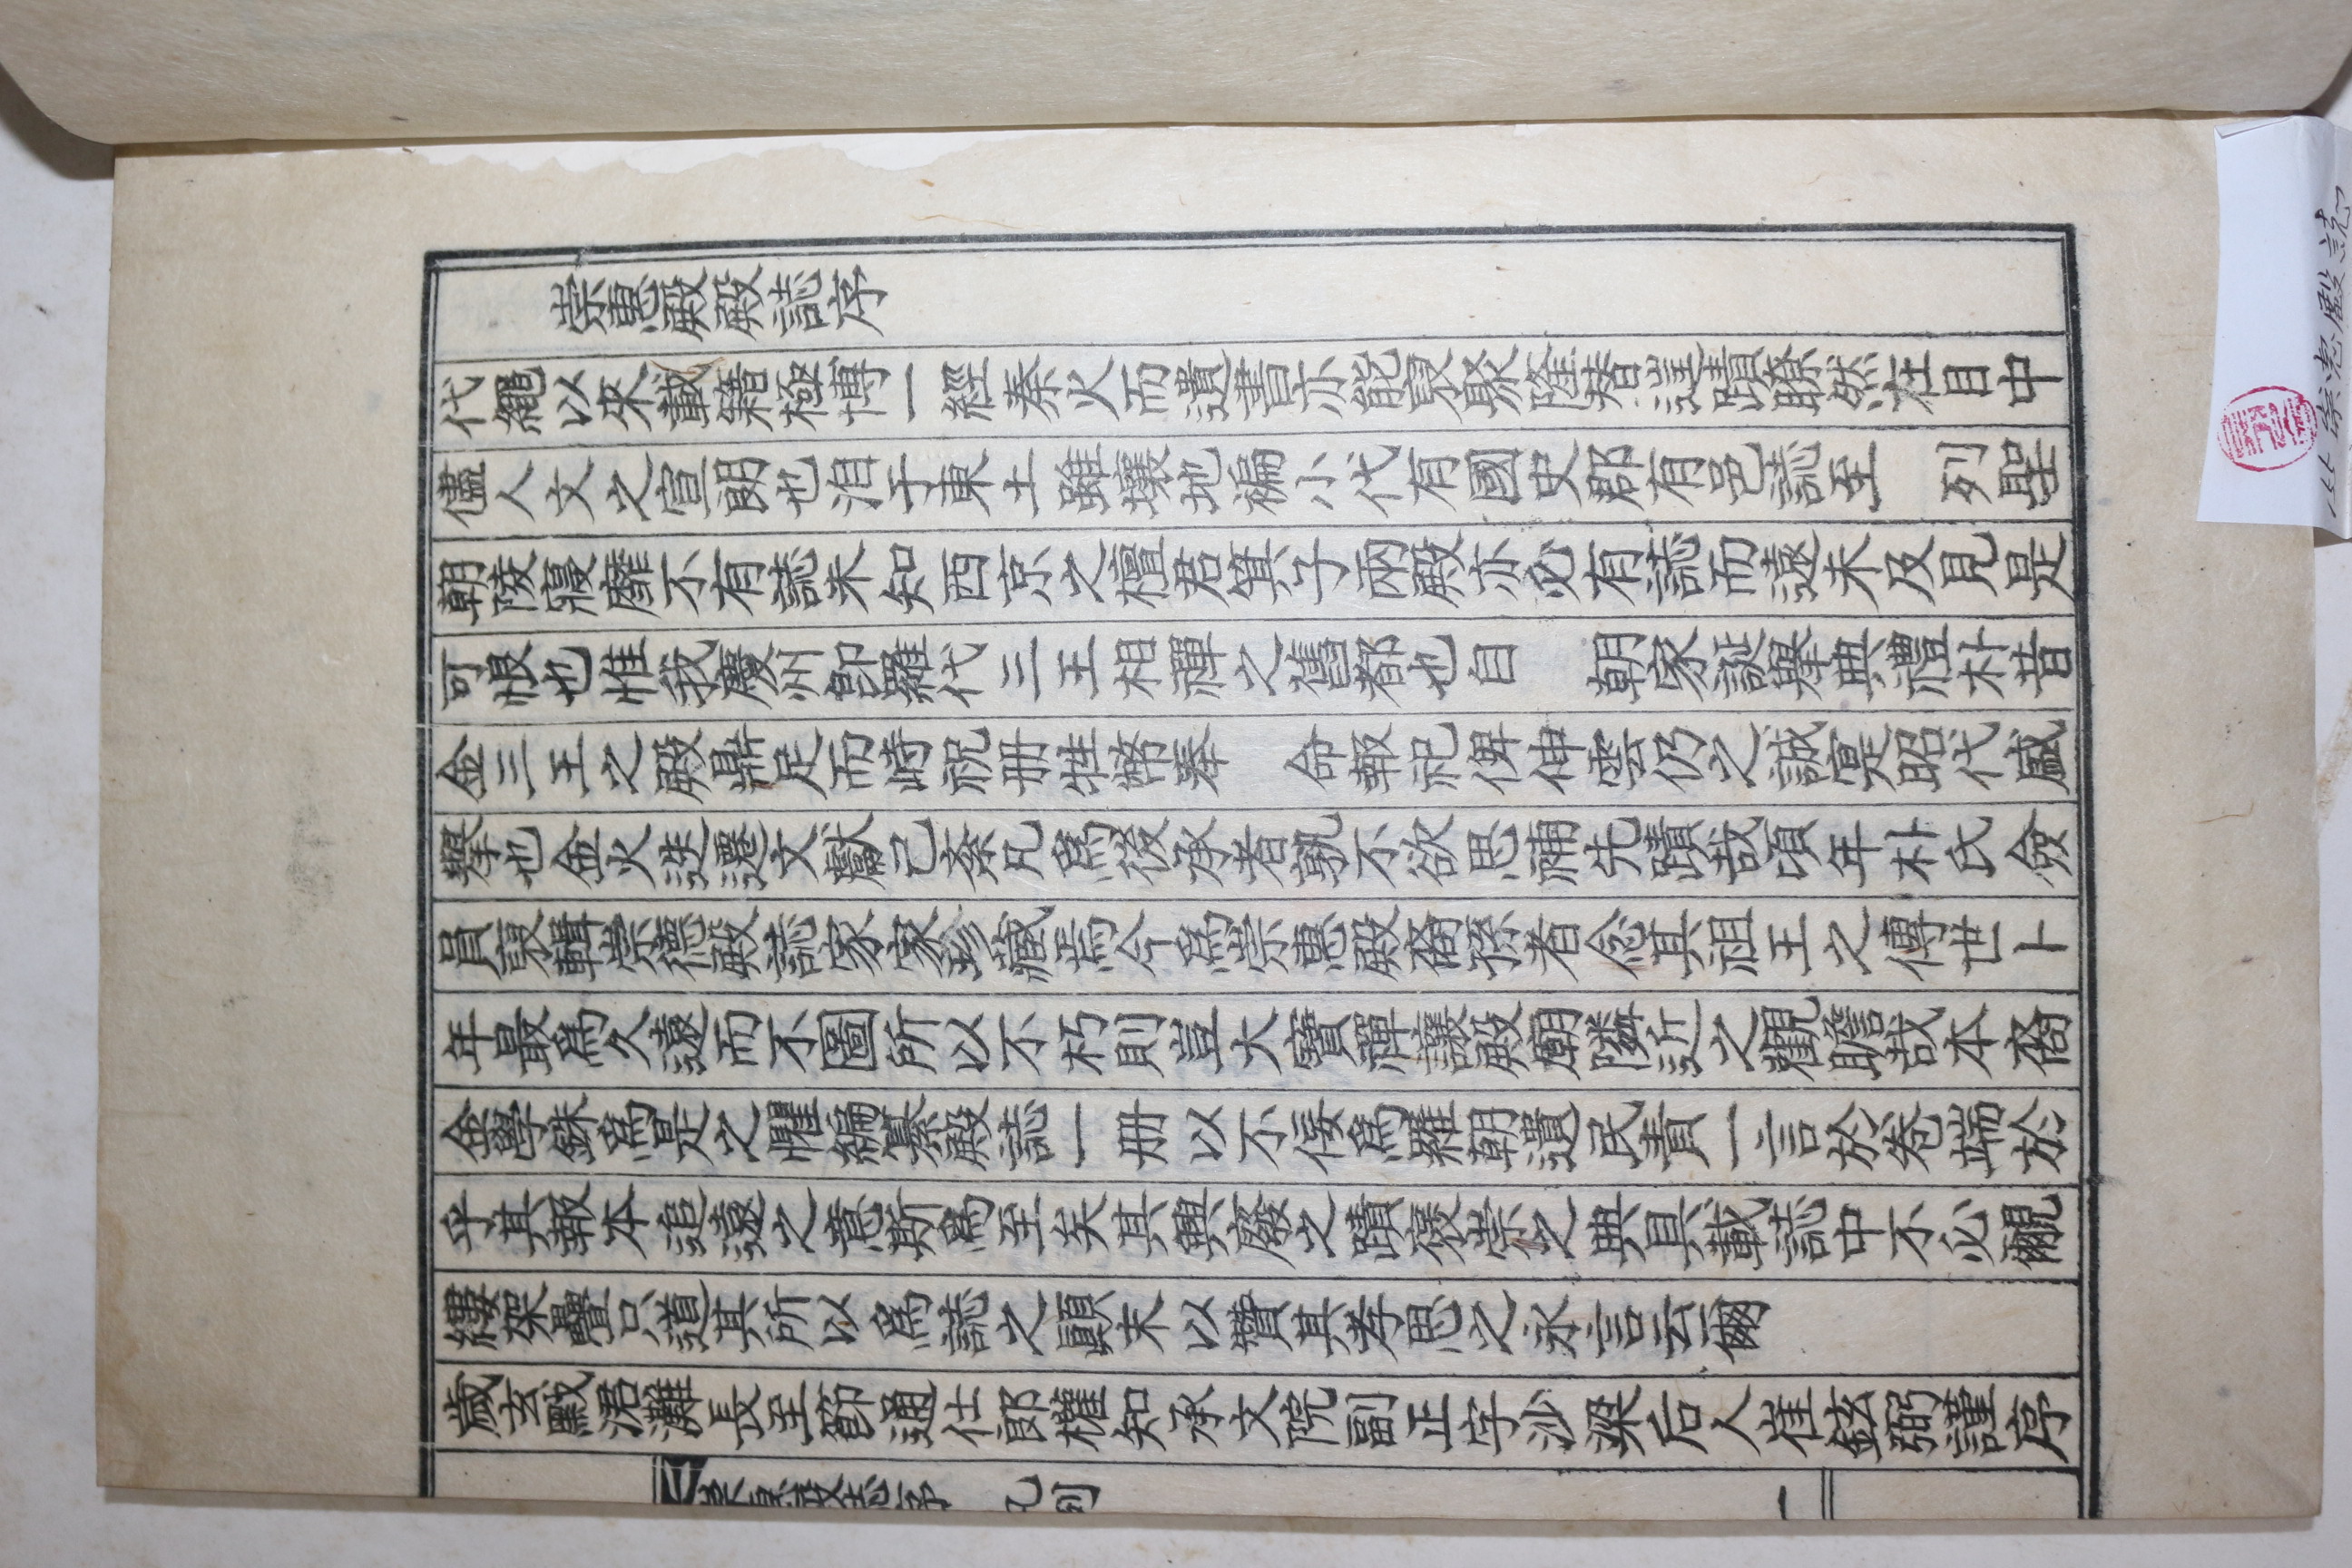 崇惠殿殿誌序
代繩以來載籍極博一經秦火而遺書亦能裒聚隆替遑蹟瞭然在目中
儘人文之宣朗也洎于東土雖壤地褊小代有國史郡有邑誌至 列聖
朝陵寢靡不有誌未知西京之檀君箕子兩殿亦必有誌而遠未及見是
可恨也惟我慶州卽羅代三王相禪之舊都也自 朝家誕擧典禮朴昔
金三王之殿鼎足而峙祝册牲幣奉 命報祀俾伸雲仍之誠寔昭代盛
擧也金火迭遷文獻已紊凡爲後承者孰不欲思補先蹟哉頃年朴氏僉
員裒輯崇德殿誌家家珍藏焉今爲崇惠殿裔孫者念其祖王之傳世卜
年最爲久遠而不圖所以不朽則豈大寶禪讓殿廟隣近之觀瞻哉本裔
金學銖爲是之懼編纂殿誌一册以不佞爲羅朝遺民責一言於卷端於
乎其報本追遠之意斯爲至矣其興廢之蹟褒崇之典具載誌中不必覼
縷架疊只道其所以爲誌之顚末以贊其孝思之永言云爾
歲玄黓涒灘長至節通仕郎權知承文院副正字沙梁后人崔鉉弼謹序
崇惠殿誌序 凡例 一
崇惠殿誌